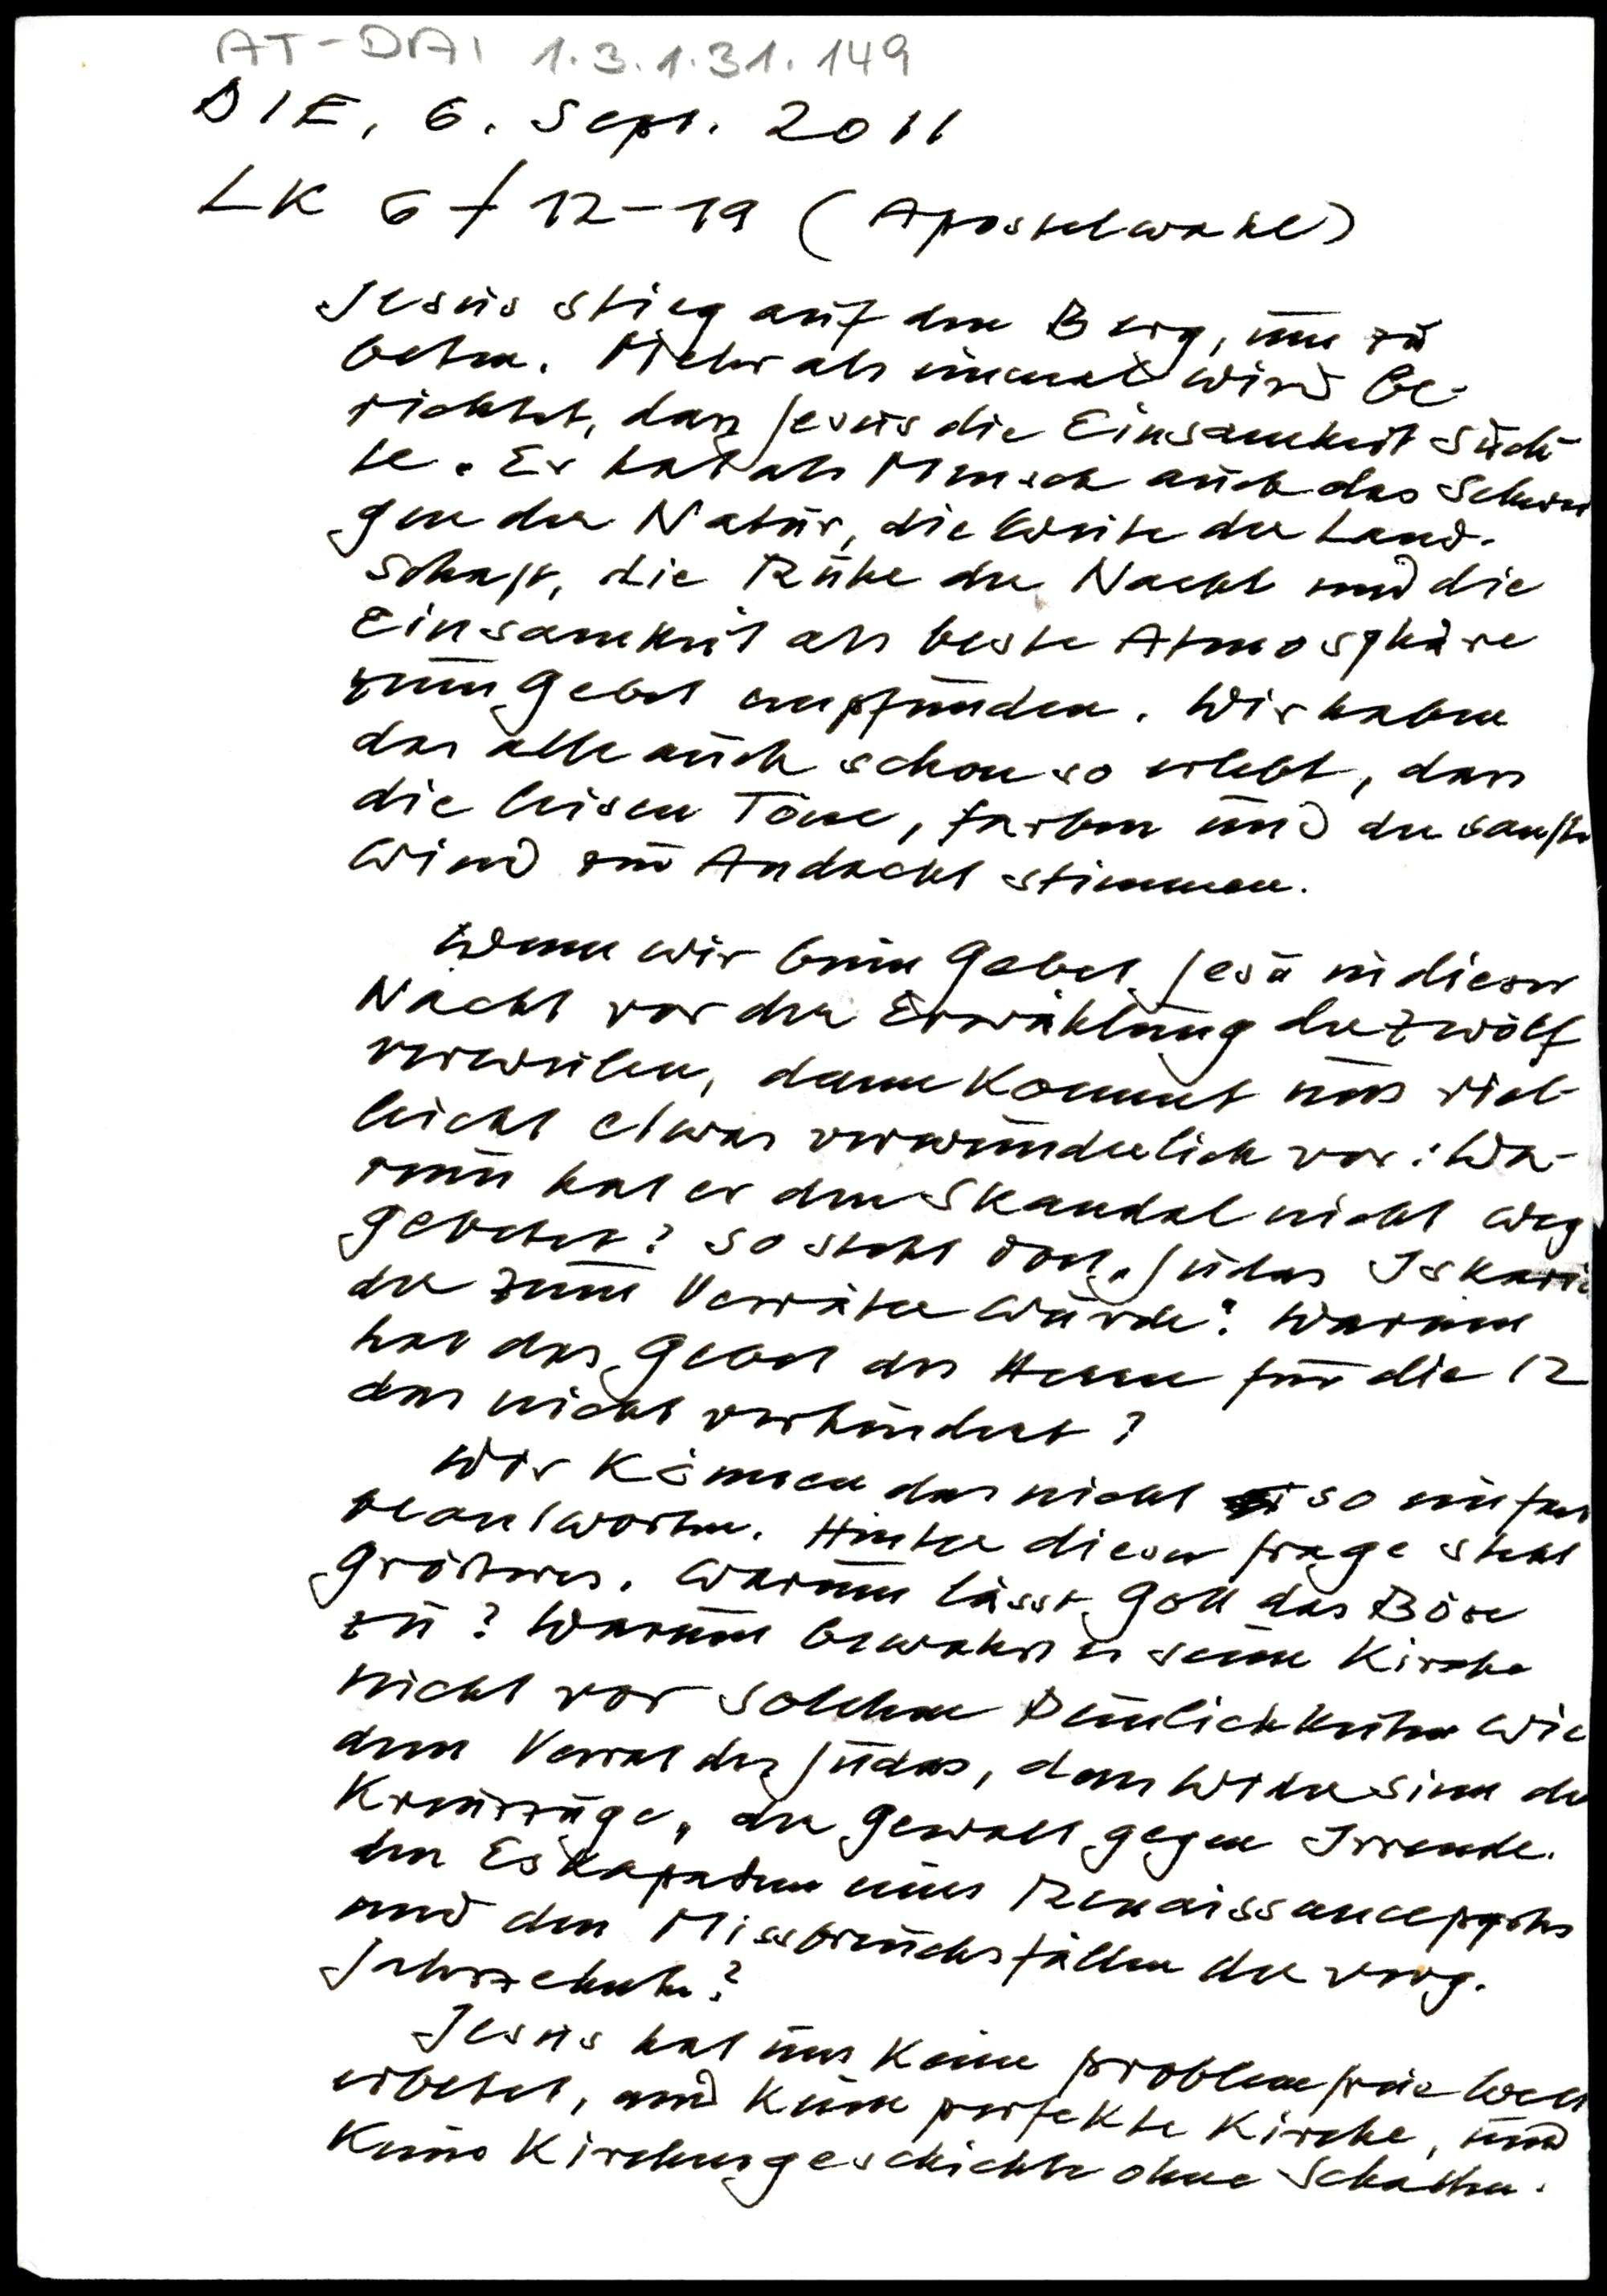 AT-DAI 1.3.1.31.149
DIE, 6. Sept. 2011
LK 6/12-19 (Apostelwahl)
Jesus stieg auf den Berg, um zu
beten. Mehr als einmal wird be-
richtet, dass Jesus die Einsamkeit such-
te. Er hat als Mensch auch das Schwei
gen der Natur, die Weite der Land-
schaft, die Ruhe der Nacht und die
Einsamkeit als beste Atmosphäre
zum Gebet empfunden. Wir haben
das alle auch schon so erlebt, dass
die leisen Töne, Farben und der sanfte
Wind zur Andacht stimmen.
Wenn wir beim Gebet Jesu in dieser
Nacht vor der Erwählung der Zwölf
verweilen, dann kommt uns viel-
leicht etwas verwunderlich vor: Wa-
rum hat er den Skandal nicht weg
gebetet? So steht dort „Judas Iskario
der zum Verräter wurde". Warum
hat das Gebet des Herrn für die 12
das nicht verhindert?
Wir können das nicht so einfach
beantworten. Hinter dieser Frage steht
Größeres. Warum lässt Gott das Böse
zu? Warum bewahrt er seine Kirche
nicht vor solchen Peinlichkeiten wie
dem Verrat des Judas, dem Widersinn der
Kreuzzüge, der Gewalt gegen Irrende.
den Eskapaden eines Renaissancepapstes
und den Missbrauchsfällen der verg.
Jahrzehnte?
Jesus hat uns keine problemfreie Welt
erbetet, und keine perfekte Kirche, und
keine Kirchengeschichte ohne Schatten.